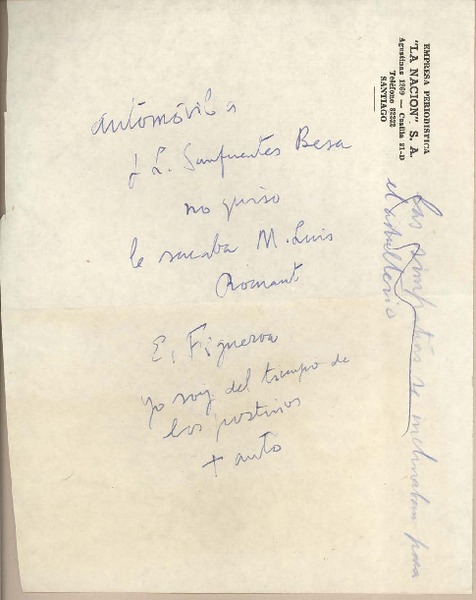 EMPRESA PERIODISTICA
"LA NACION" S. A.
Agustinas 1269 — Casilla 81-D
Teléfono 82222
SANTIAGO
Las simpatías se inclinaban para
el adulterio
automóvil a
J L. Sanfuentes Besa
no quiso
le sacaba M. Luis
E. Figueroa
yo soy del tiempo de
los postinos
+ auto